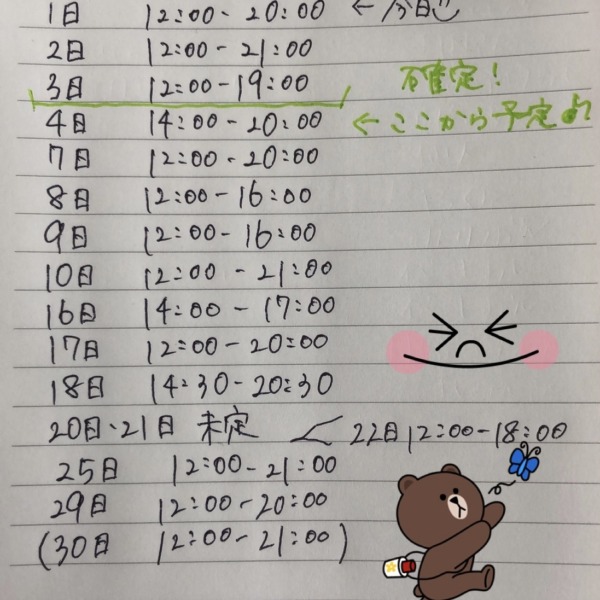 1日 12:00-20:00 ← 今日
2日 12:00-21:00
3日 12:00-19:00 確定!
4日 14:00-20:00 ← ここから予定♪
7日 12:00-20:00
8日 12:00-16:00
9日 12:00-16:00
10日 12:00-21:00
16日 14:00-17:00
17日 12:00-20:00
18日 14:30-20:30
20日・21日 未定 < 22日12:00-18:00
25日 12:00-21:00
29日 12:00-20:00
(30日 12:00-21:00)